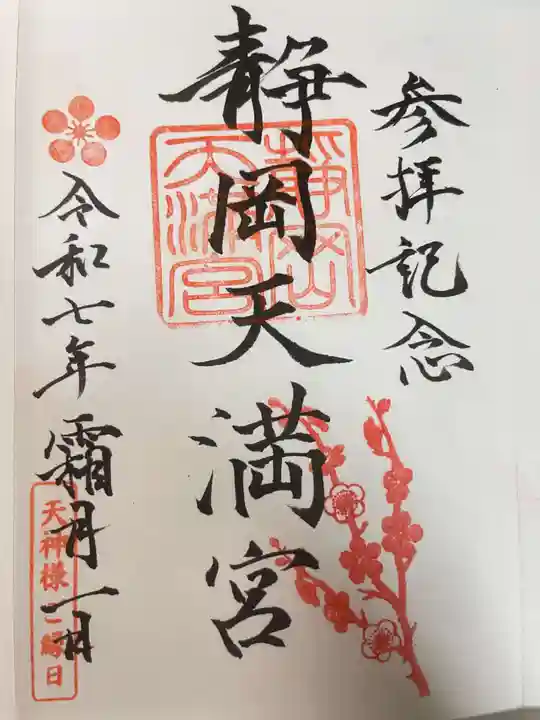 参拝記念
静岡天満宮
静岡天満宮
令和七年霜月一日
天神様ご縁日